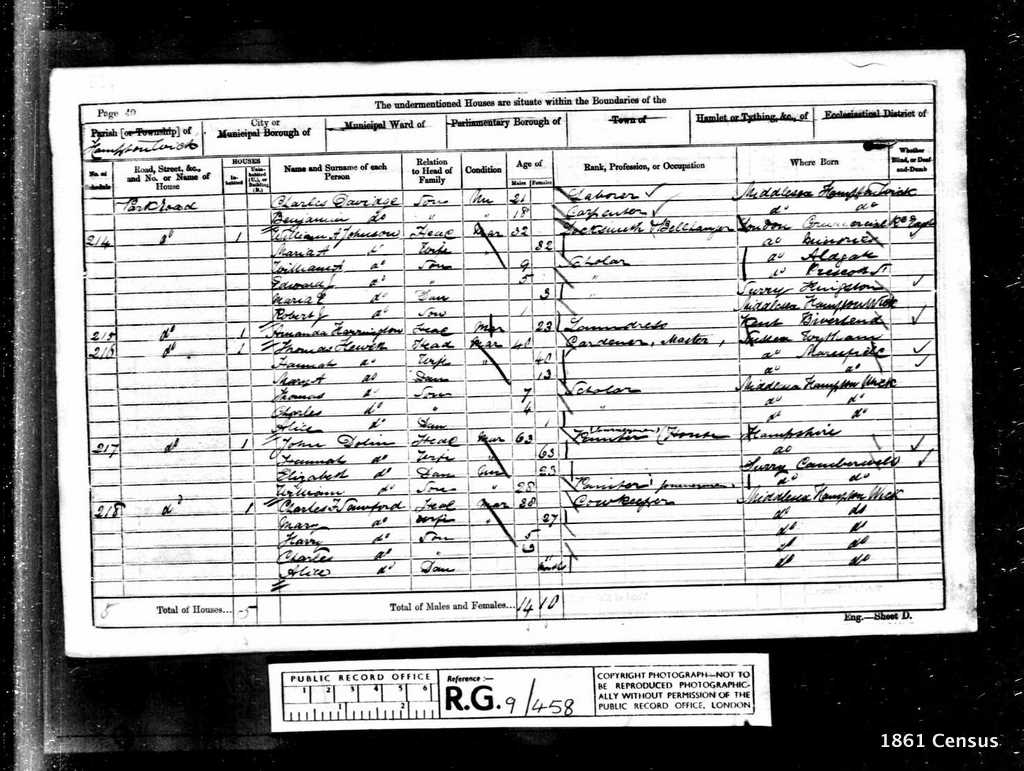 The undermentioned Houses are situate within the Boundaries of the
Page 40
Parish [or Township] of
Hampton Wick
City or Municipal Borough of
Municipal Ward of
Parliamentary Borough of
Town of
Hamlet or Tything, &c., of
Ecclesiastical District of
No. of Schedule
Road, Street, &c., and No. or Name of House
HOUSES
Inhabited
Uninhabited (U.), or Building (B.)
Name and Surname of each Person
Relation to Head of Family
Condition
Age of
Males
Females
Rank, Profession, or Occupation
Where Born
Whether Blind, or Deaf-and-Dumb
Park Road Charles Davidge Son Un 21 Laborer Middlesex Hampton Wick
Benjamin do " " 18 Carpenter do do
214 do 1 William A Johnson Head Mar 32 Locksmith & Bellhanger London Commercial Rd
Maria A do Wife " 32 do Minories
William A do Son 9 Scholar do Aldgate
Edward J " " 5 " do Prescott St
Maria do Dau 3 " Surry Kingston
Robert J do Son 1 Middlesex Hampton Wick
215 do 1 Amanda Harrington Head Mar 23 Laundress Kent
216 do 1 Thomas Hewitt Head Mar 40 Gardener, Master, Sussex Wytham
Hannah do Wife " 40 do Maresfield
Mary A do Dau 13 do do
Thomas do Son 7 Scholar Middlesex Hampton Wick
Charles do " 4 " do do
Alice do Dau 1 do do
217 do 1 John Dolin Head Mar 63 Painter (House Hampshire
Hannah do Wife " 63 do
Elizabeth do Dau Un 23 Surry Camberwell
William do Son " 28 Painter journeyman do do
218 do 1 Charles Head Mar 28 Cowkeeper Middlesex Hampton Wick
Mary do Wife " 27 do do
Harry do Son 5 do do
Charles do " do do
Alice do Dau months do do
5 Total of Houses... 5 Total of Males and Females... 14 10
Eng.—Sheet D.
PUBLIC RECORD OFFICE
1 2 3 4 5 6
1 2
Reference :—
R.G. 9/458
COPYRIGHT PHOTOGRAPH—NOT TO
BE REPRODUCED PHOTOGRAPHIC-
ALLY WITHOUT PERMISSION OF THE
PUBLIC RECORD OFFICE, LONDON
1861 Census